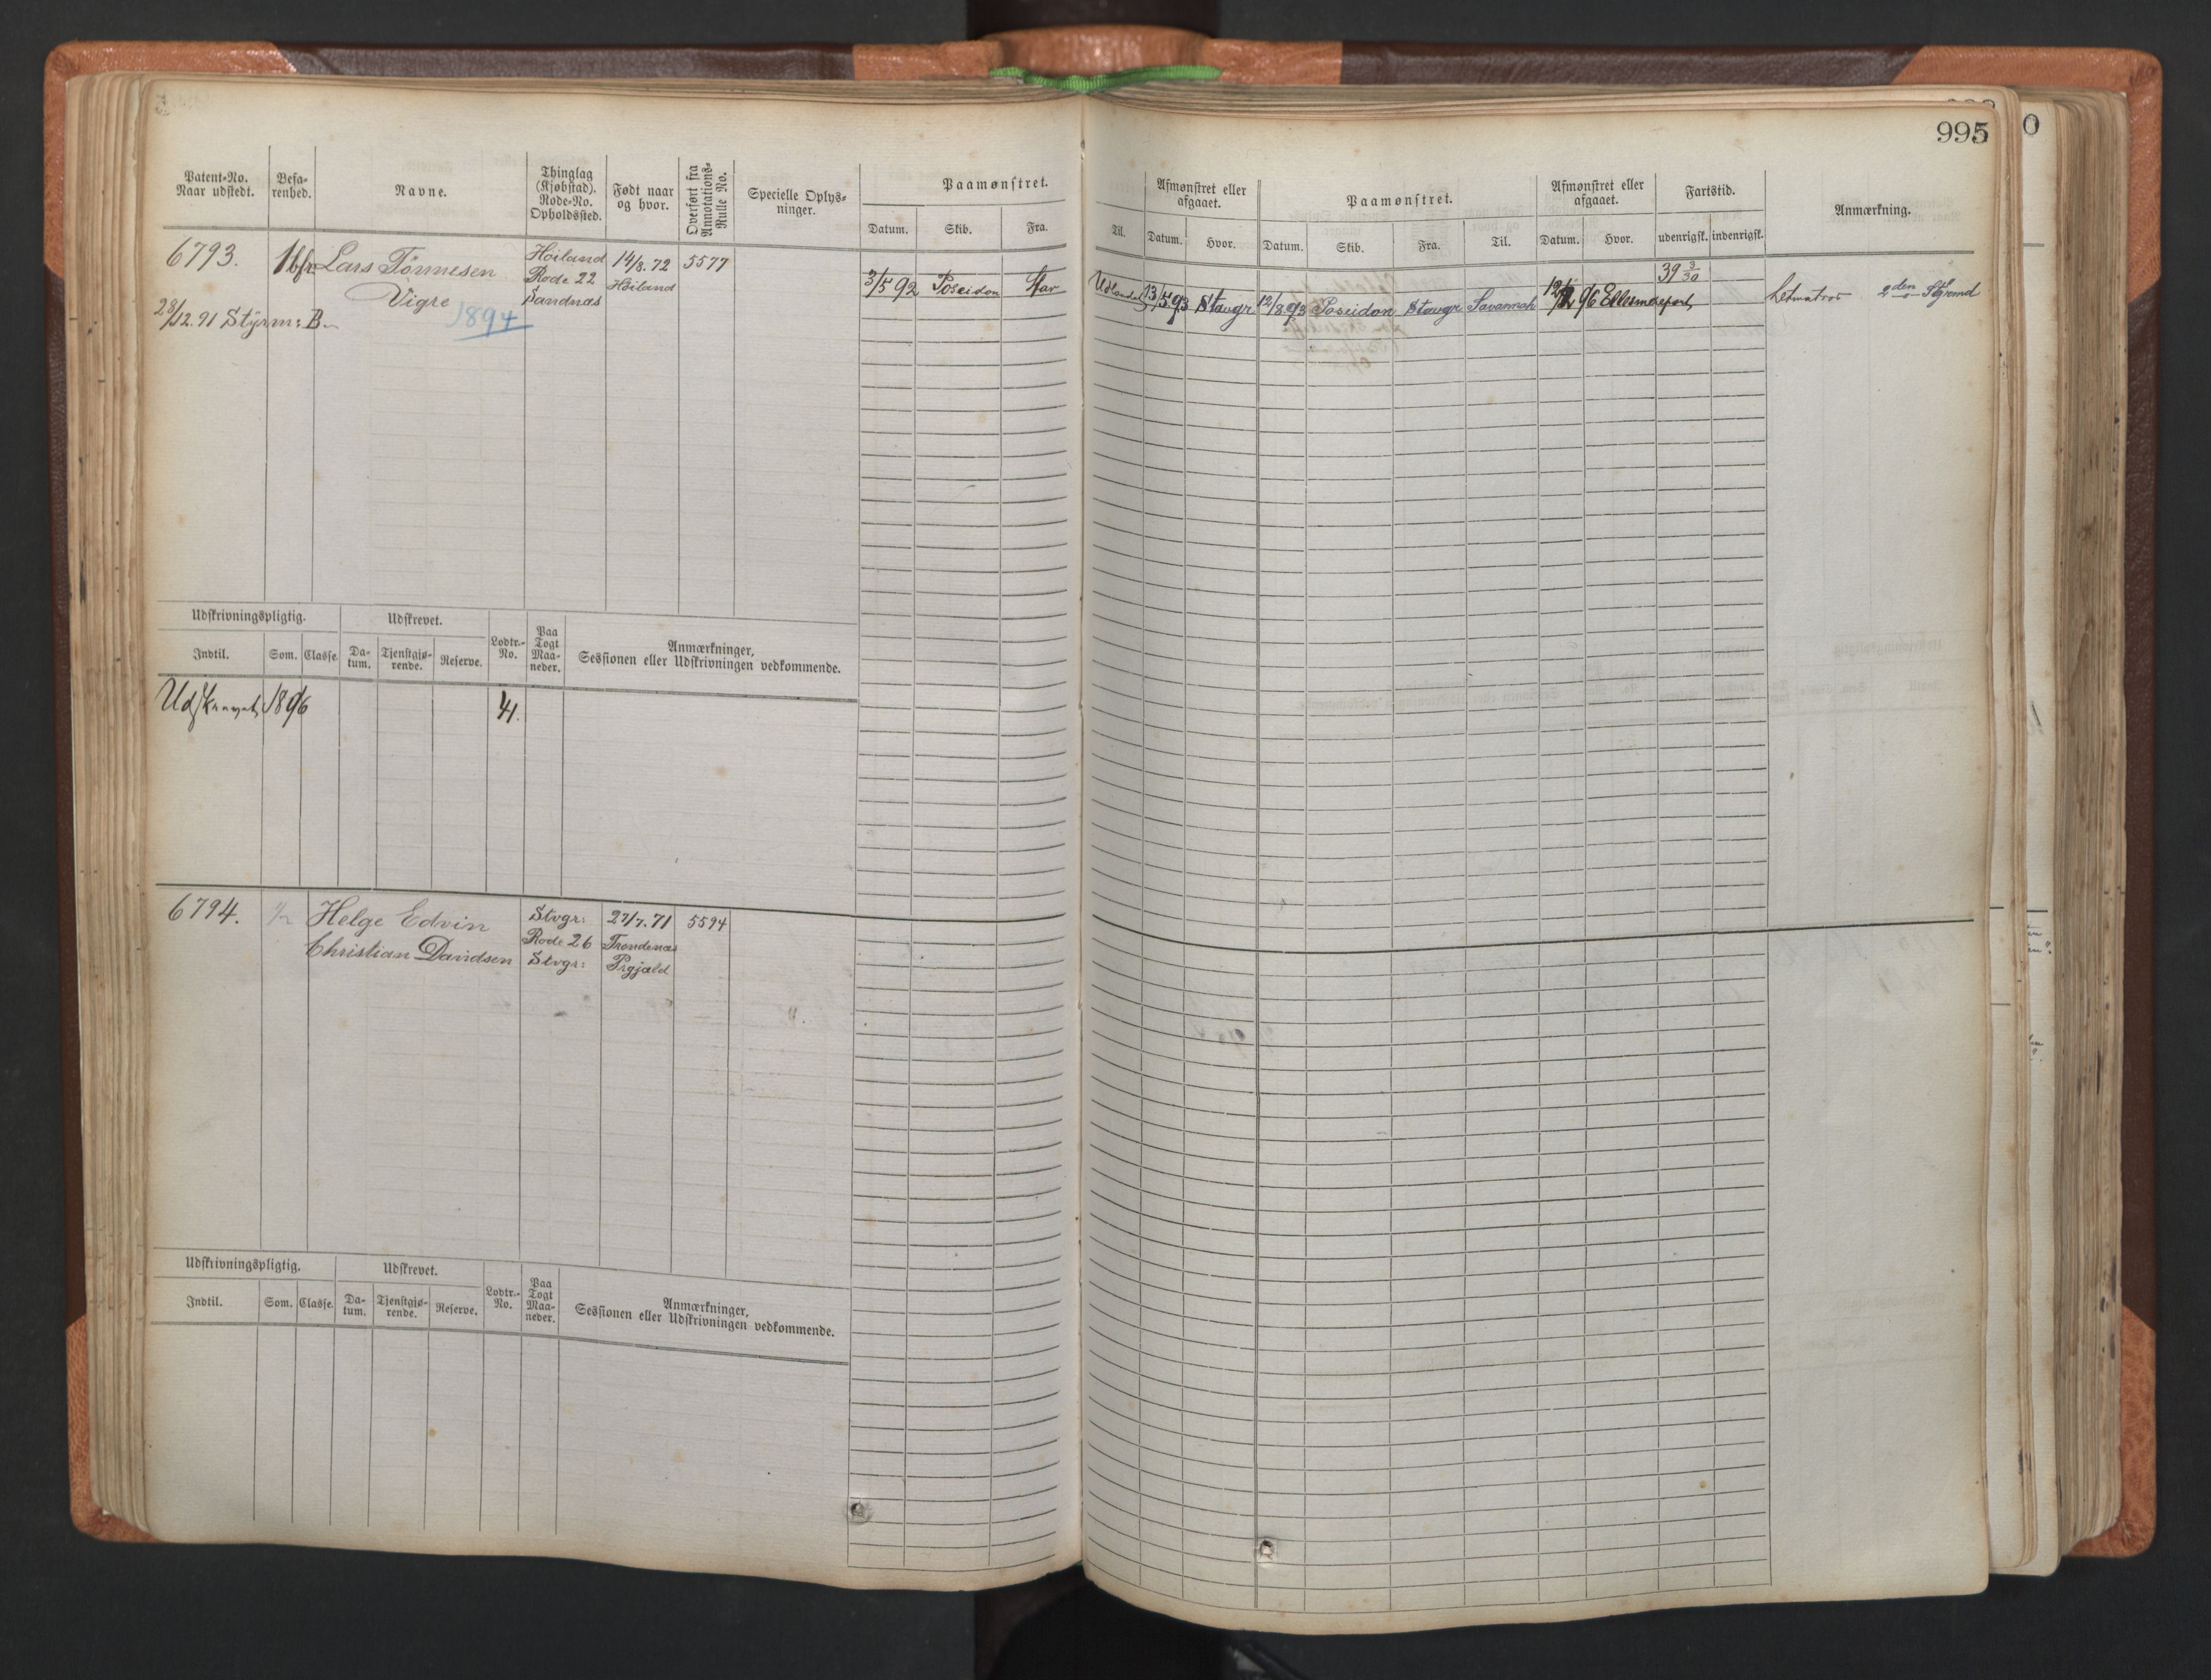 995
0
Patent-No. Naar udstedt.
Befa-renhed.
Navne.
Thinglag (Kjøbstad). Rode-No. Opholdssted.
Født naar og hvor.
Overført fra Annotations-Rulle No.
Specielle Oplys-ninger.
Paamønstret.
Datum. Skib. Fra.
Til.
Afmønstret eller afgaaet.
Datum. Hvor.
Paamønstret.
Datum. Skib. Fra. Til.
Afmønstret eller afgaaet.
Datum. Hvor.
Fartstid.
udenrigsk. indenrigsk.
Anmærkning.
6793. Lars Tönnesen Höiland 14/8.72 5577
Vigre Rode 22 Höiland
Sandnæs
28/12.91 Styrm: B.
1894
3/5 92 Poseidon Stav
Udlandet 13/5 93 Stavgr 12/8 93 Poseidon Stavgr Savannah 96 Ellesmereport
39 3/30
Letmatros 2den Styrmd
Udskrivningspligtig. Udskrevet. Lodtr.-No. Paa Togt Maa-neder. Anmærkninger,
Sessionen eller Udskrivningen vedkommende.
Indtil. Som. Classe. Da-tum. Tjenstgjø-rende. Reserve.
1896 41.
6794. 1/2 Helge Edvin Stvgr: 27/7.71 5594
Christian Davidsen Rode 26 Trondenæs
Stvgr: Prgjæld
Udskrivningspligtig. Udskrevet. Lodtr.-No. Paa Togt Maa-neder. Anmærkninger,
Sessionen eller Udskrivningen vedkommende.
Indtil. Som. Classe. Da-tum. Tjenstgjø-rende. Reserve.